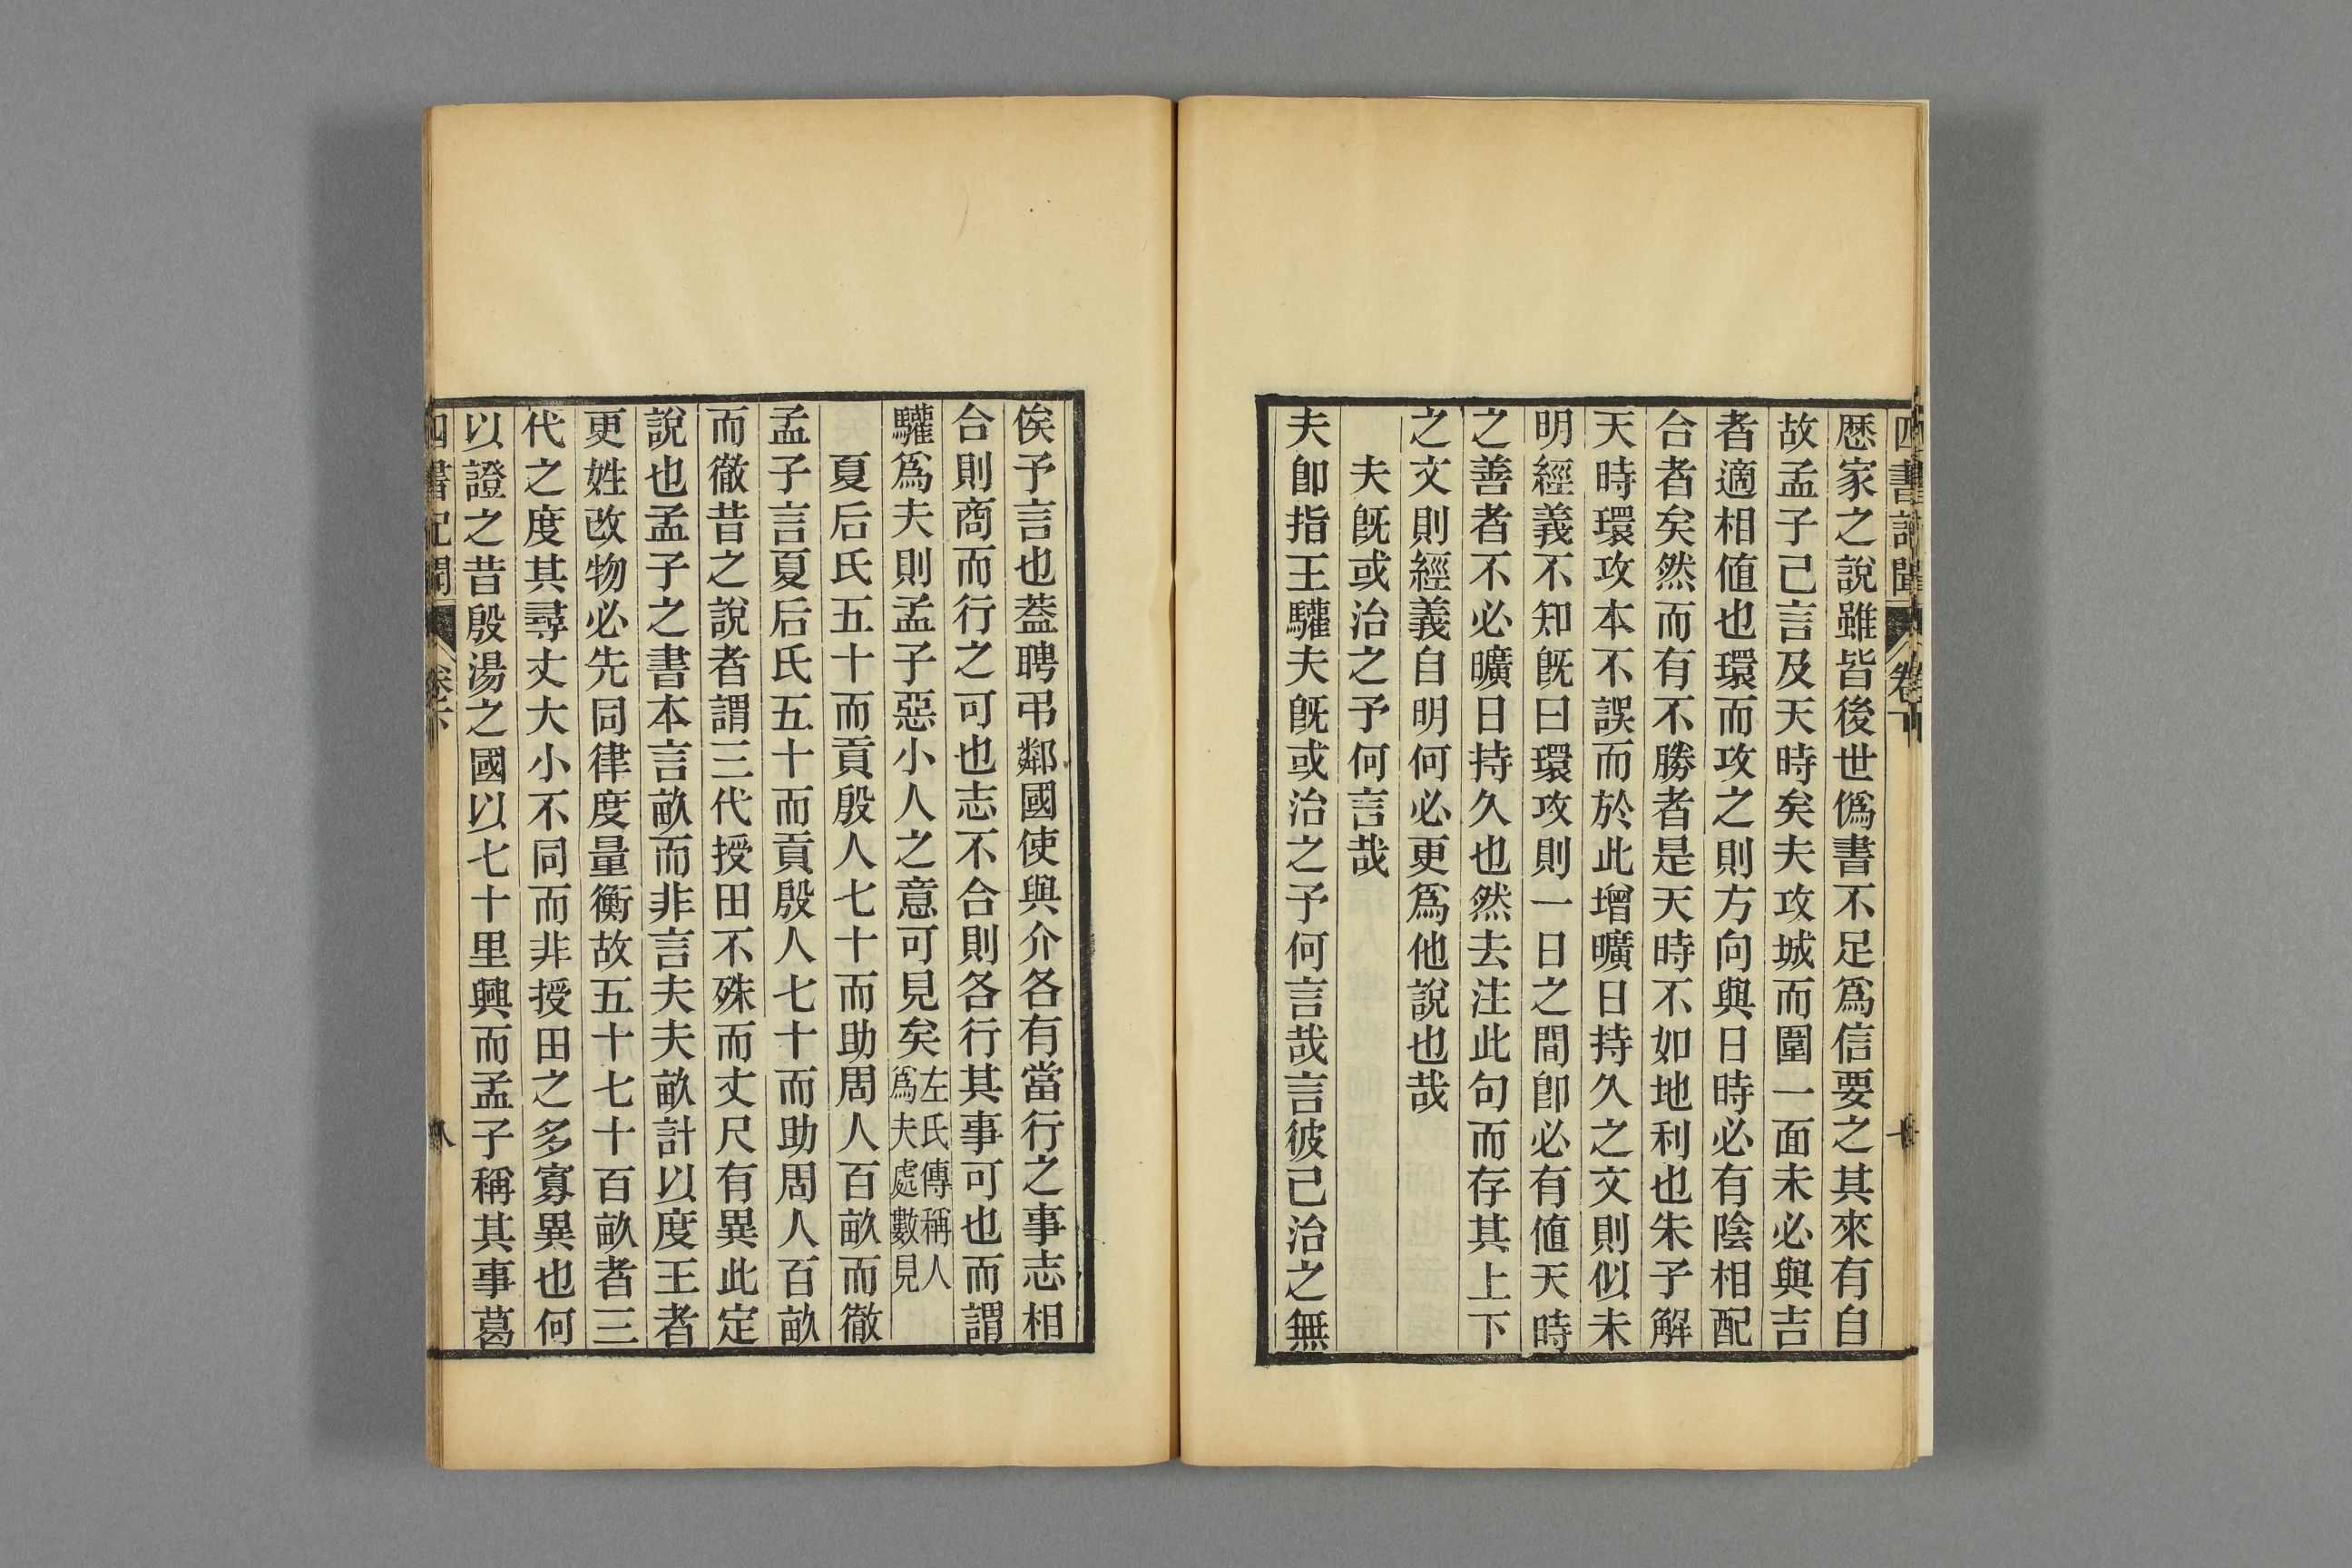 歴家之說雖皆後世僞書不足爲信要之其來有自
故孟子己言及天時矣夫攻城而圍一面未必與吉
者適相値也環而攻之則方向與日時必有陰相配
合者矣然而有不勝者是天時不如地利也朱子解
天時環攻本不誤而於此增曠日持久之文則似未
明經義不知旣曰環攻則一日之間卽必有値天時
之善者不必曠日持久也然去注此句而存其上下
之文則經義自明何必更爲他說也哉
夫旣或治之予何言哉
夫卽指王驩夫旣或治之予何言哉言彼己治之無
俟予言也蓋聘弔鄰國使與介各有當行之事志相
合則商而行之可也志不合則各行其事可也而謂
驩爲夫則孟子惡小人之意可見矣左氏傳稱人爲夫處數見
夏后氏五十而貢殷人七十而助周人百畝而徹
孟子言夏后氏五十而貢殷人七十而助周人百畝
而徹昔之說者謂三代授田不殊而丈尺有異此定
說也孟子之書本言畝而非言夫夫畝計以度王者
更姓改物必先同律度量衡故五十七十百畝者三
代之度其尋丈大小不同而非授田之多寡異也何
以證之昔殷湯之國以七十里興而孟子稱其事葛